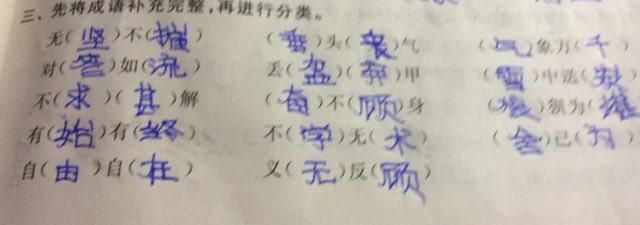 三、先将成语补充完整,再进行分类。
无(坚)不(摧) ( )头( )气 (气)象万(千)
对(答)如(流) 丢(盔)(弃)甲 (雪)中送(
不(求)(甚)解 (奋)不(顾)身 ( )狈为(
有(始)有(终) 不(学)无(术) (舍)己(为)
自(由)自(在) 义(无)反(顾)